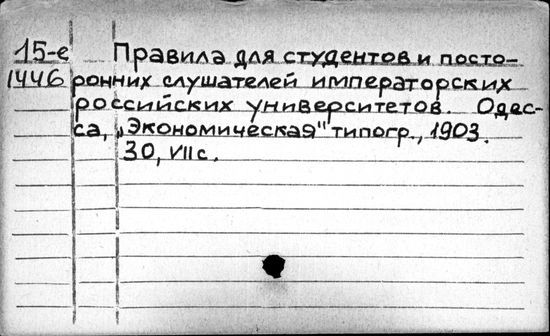 15-е Правила для студентов и посто-
1446 ронних слушателей императорских
российских университетов. Одес-
са, „Экономическая" типогр., 1903.
30, VII с.